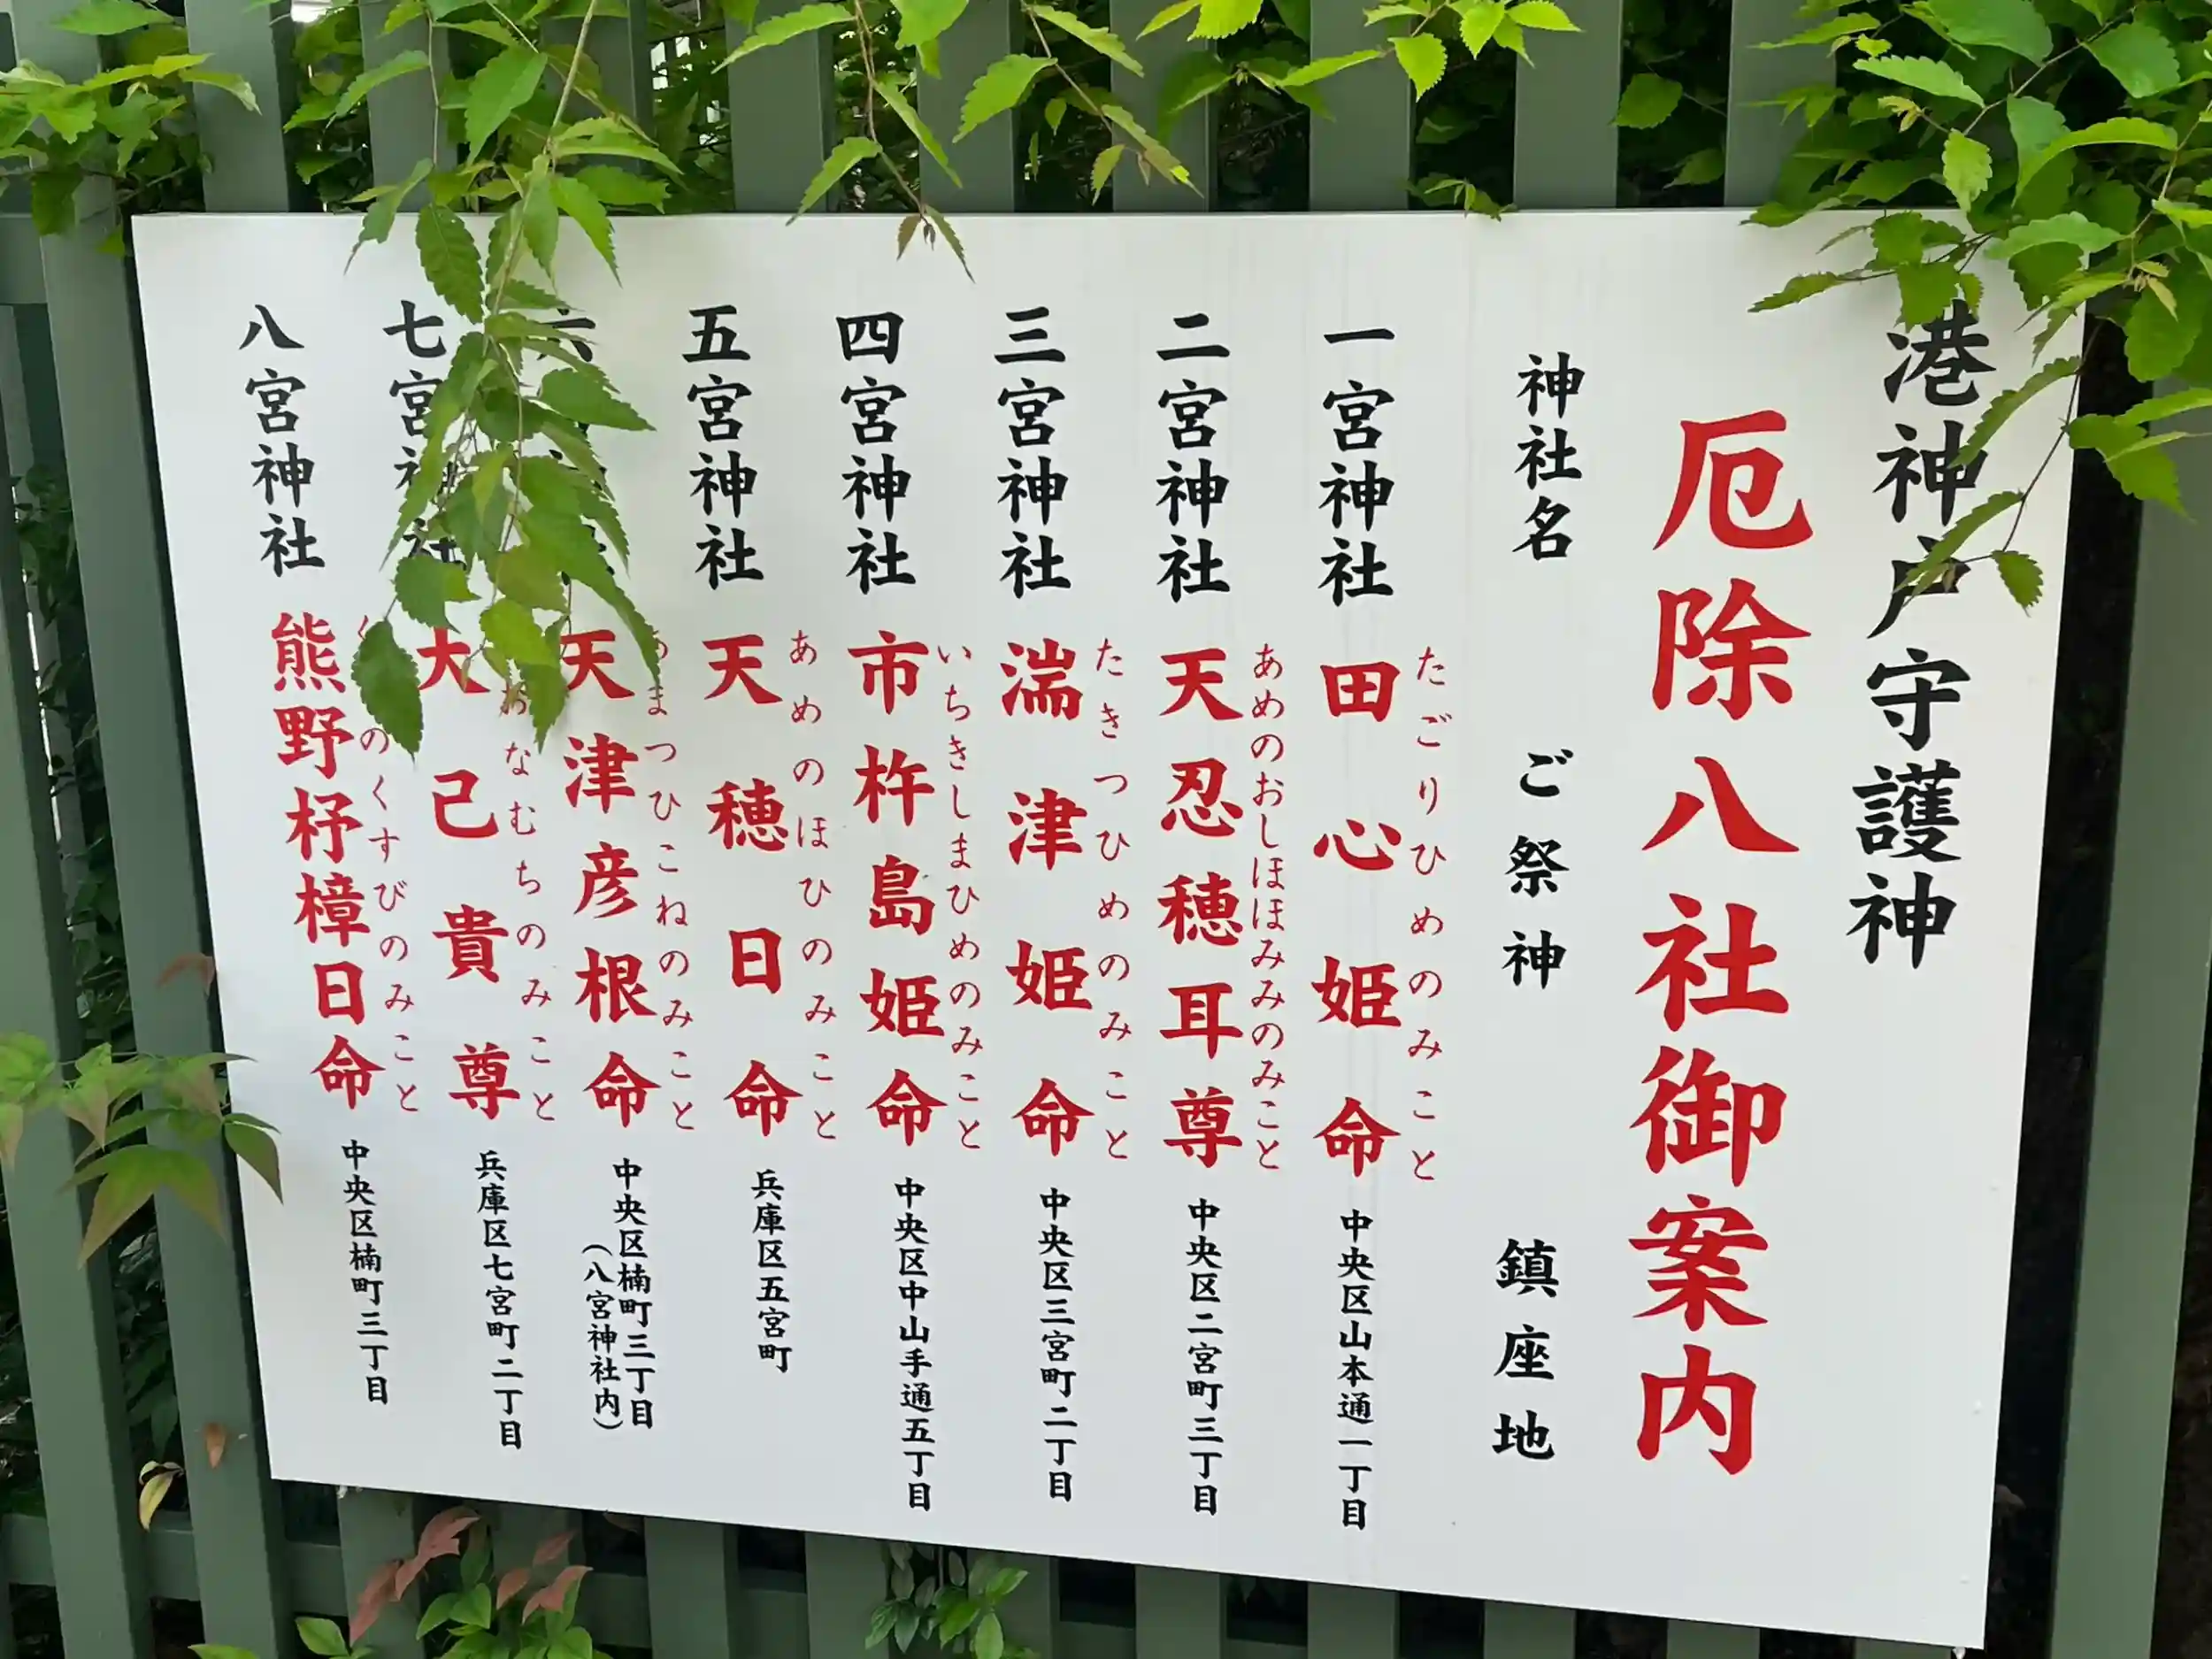 港神戸守護神
厄除八社御案内
神社名 ご祭神 鎮座地
一宮神社 田心姫命 中央区山本通一丁目
たごりひめのみこと
二宮神社 天忍穂耳尊 中央区二宮町三丁目
あめのおしほほみみのみこと
三宮神社 湍津姫命 中央区三宮町二丁目
たきつひめのみこと
四宮神社 市杵島姫命 中央区中山手通五丁目
いちきしまひめのみこと
五宮神社 天穂日命 兵庫区五宮町
あめのほひのみこと
六 天津彦根命 中央区楠町三丁目
(八宮神社内)
まつひこねのみこと
七宮神社 大己貴尊 兵庫区七宮町二丁目
なむちのみこと
八宮神社 熊野杼樟日命 中央区楠町三丁目
のくすびのみこと